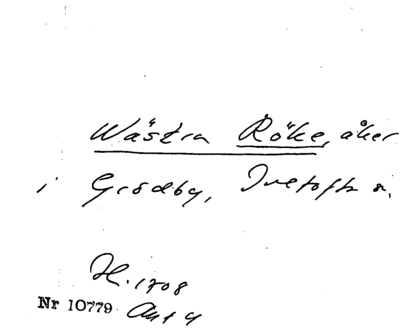 Wästra Röke, åker
i Grödby, Ivetofta s.
H. 1708
Nr 10779 Akt 4